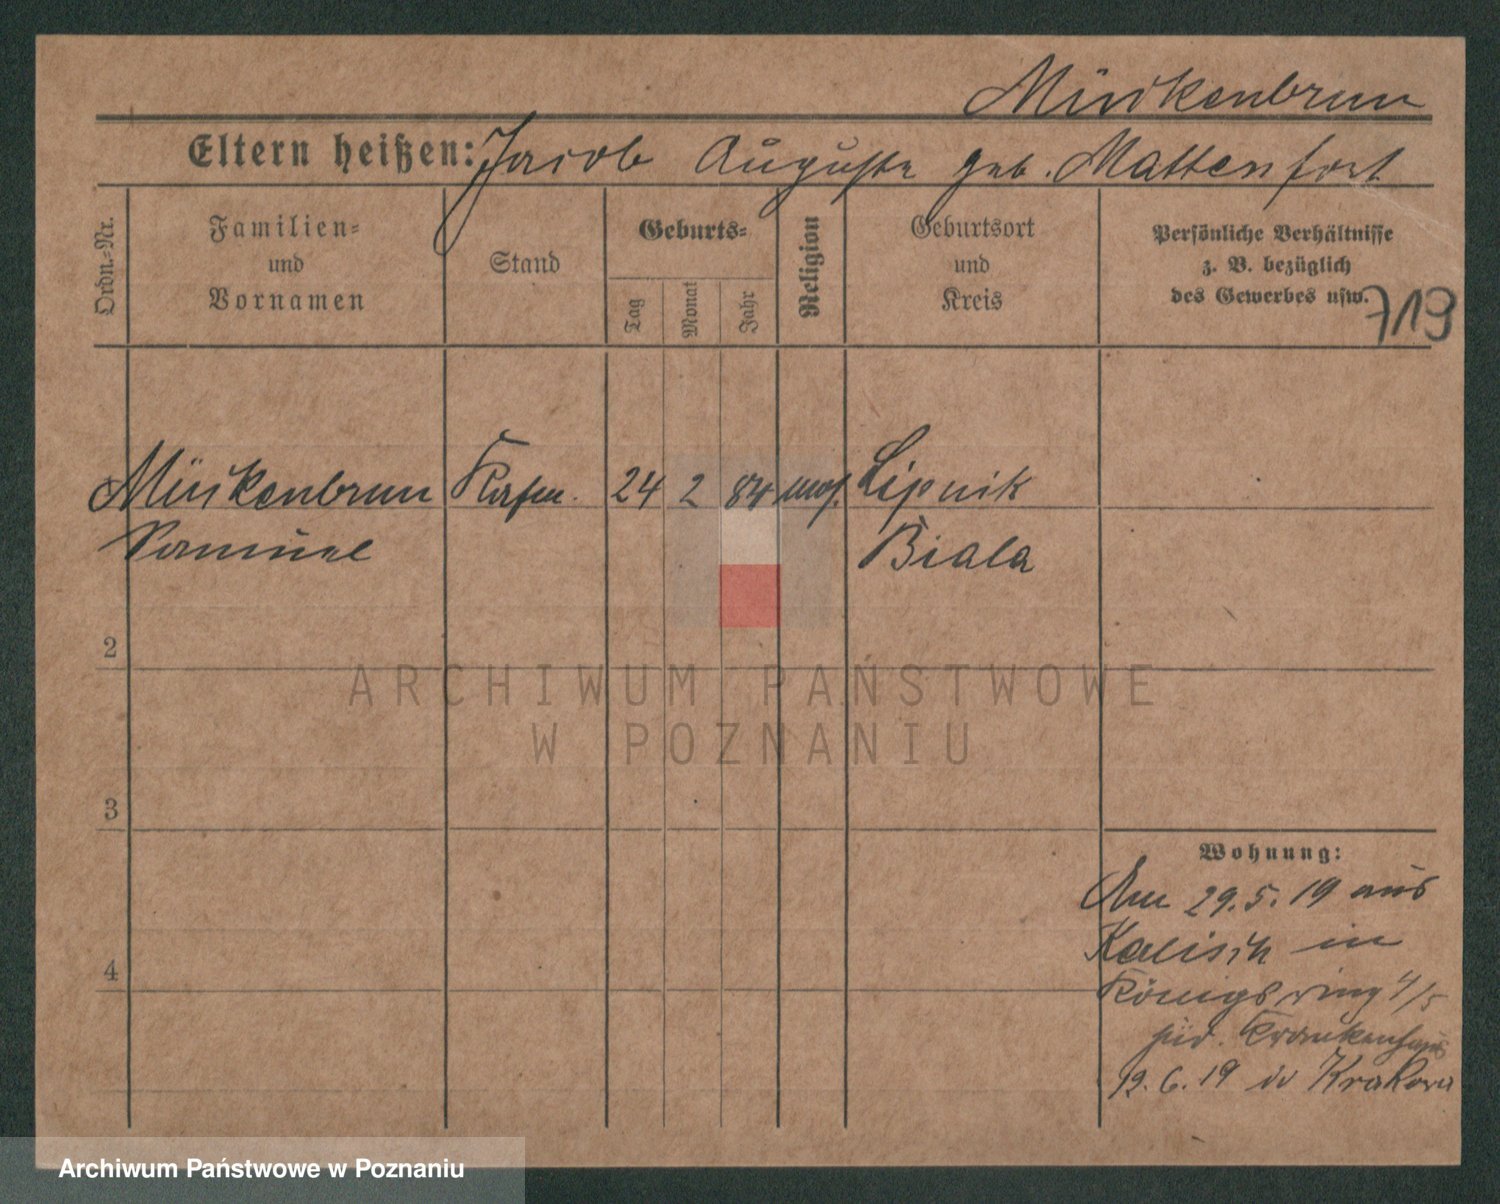 Mückenbrun
Eltern heißen: Jacob Auguste geb. Mattenfort
Ordn.-Nr.
Familien-
und
Vornamen
Stand
Geburts-
Tag
Monat
Jahr
Religion
Geburtsort
und
Kreis
Persönliche Verhältnisse
z. B. bezüglich
des Gewerbes usw.
719
Mückenbrun
Samuel
24 2 84 mos.
Lipnik
Biala
2
3
4
Wohnung:
Am 29.5.19 aus
Kalisch in
Königsring 4/5
jüd. Krankenhaus
12.6.19 in Krakau
ARCHIWUM PAŃSTWOWE
W POZNANIU
Archiwum Państwowe w Poznaniu